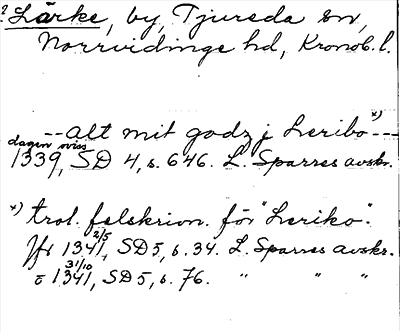 ? Lärke, by, Tjureda sn,
Norrvidinge hd, Kronob. l.
--- alt mit godz j Leribo x) ---
dagen viss
1339, SD 4, s. 646. L. Sparres avskr.
x) trol. felskrivn. för "Leriko".
Jfr 1341 2/5, SD 5, s. 34. L. Sparres avskr.
o 1341 31/10, SD 5, s. 76. " " "